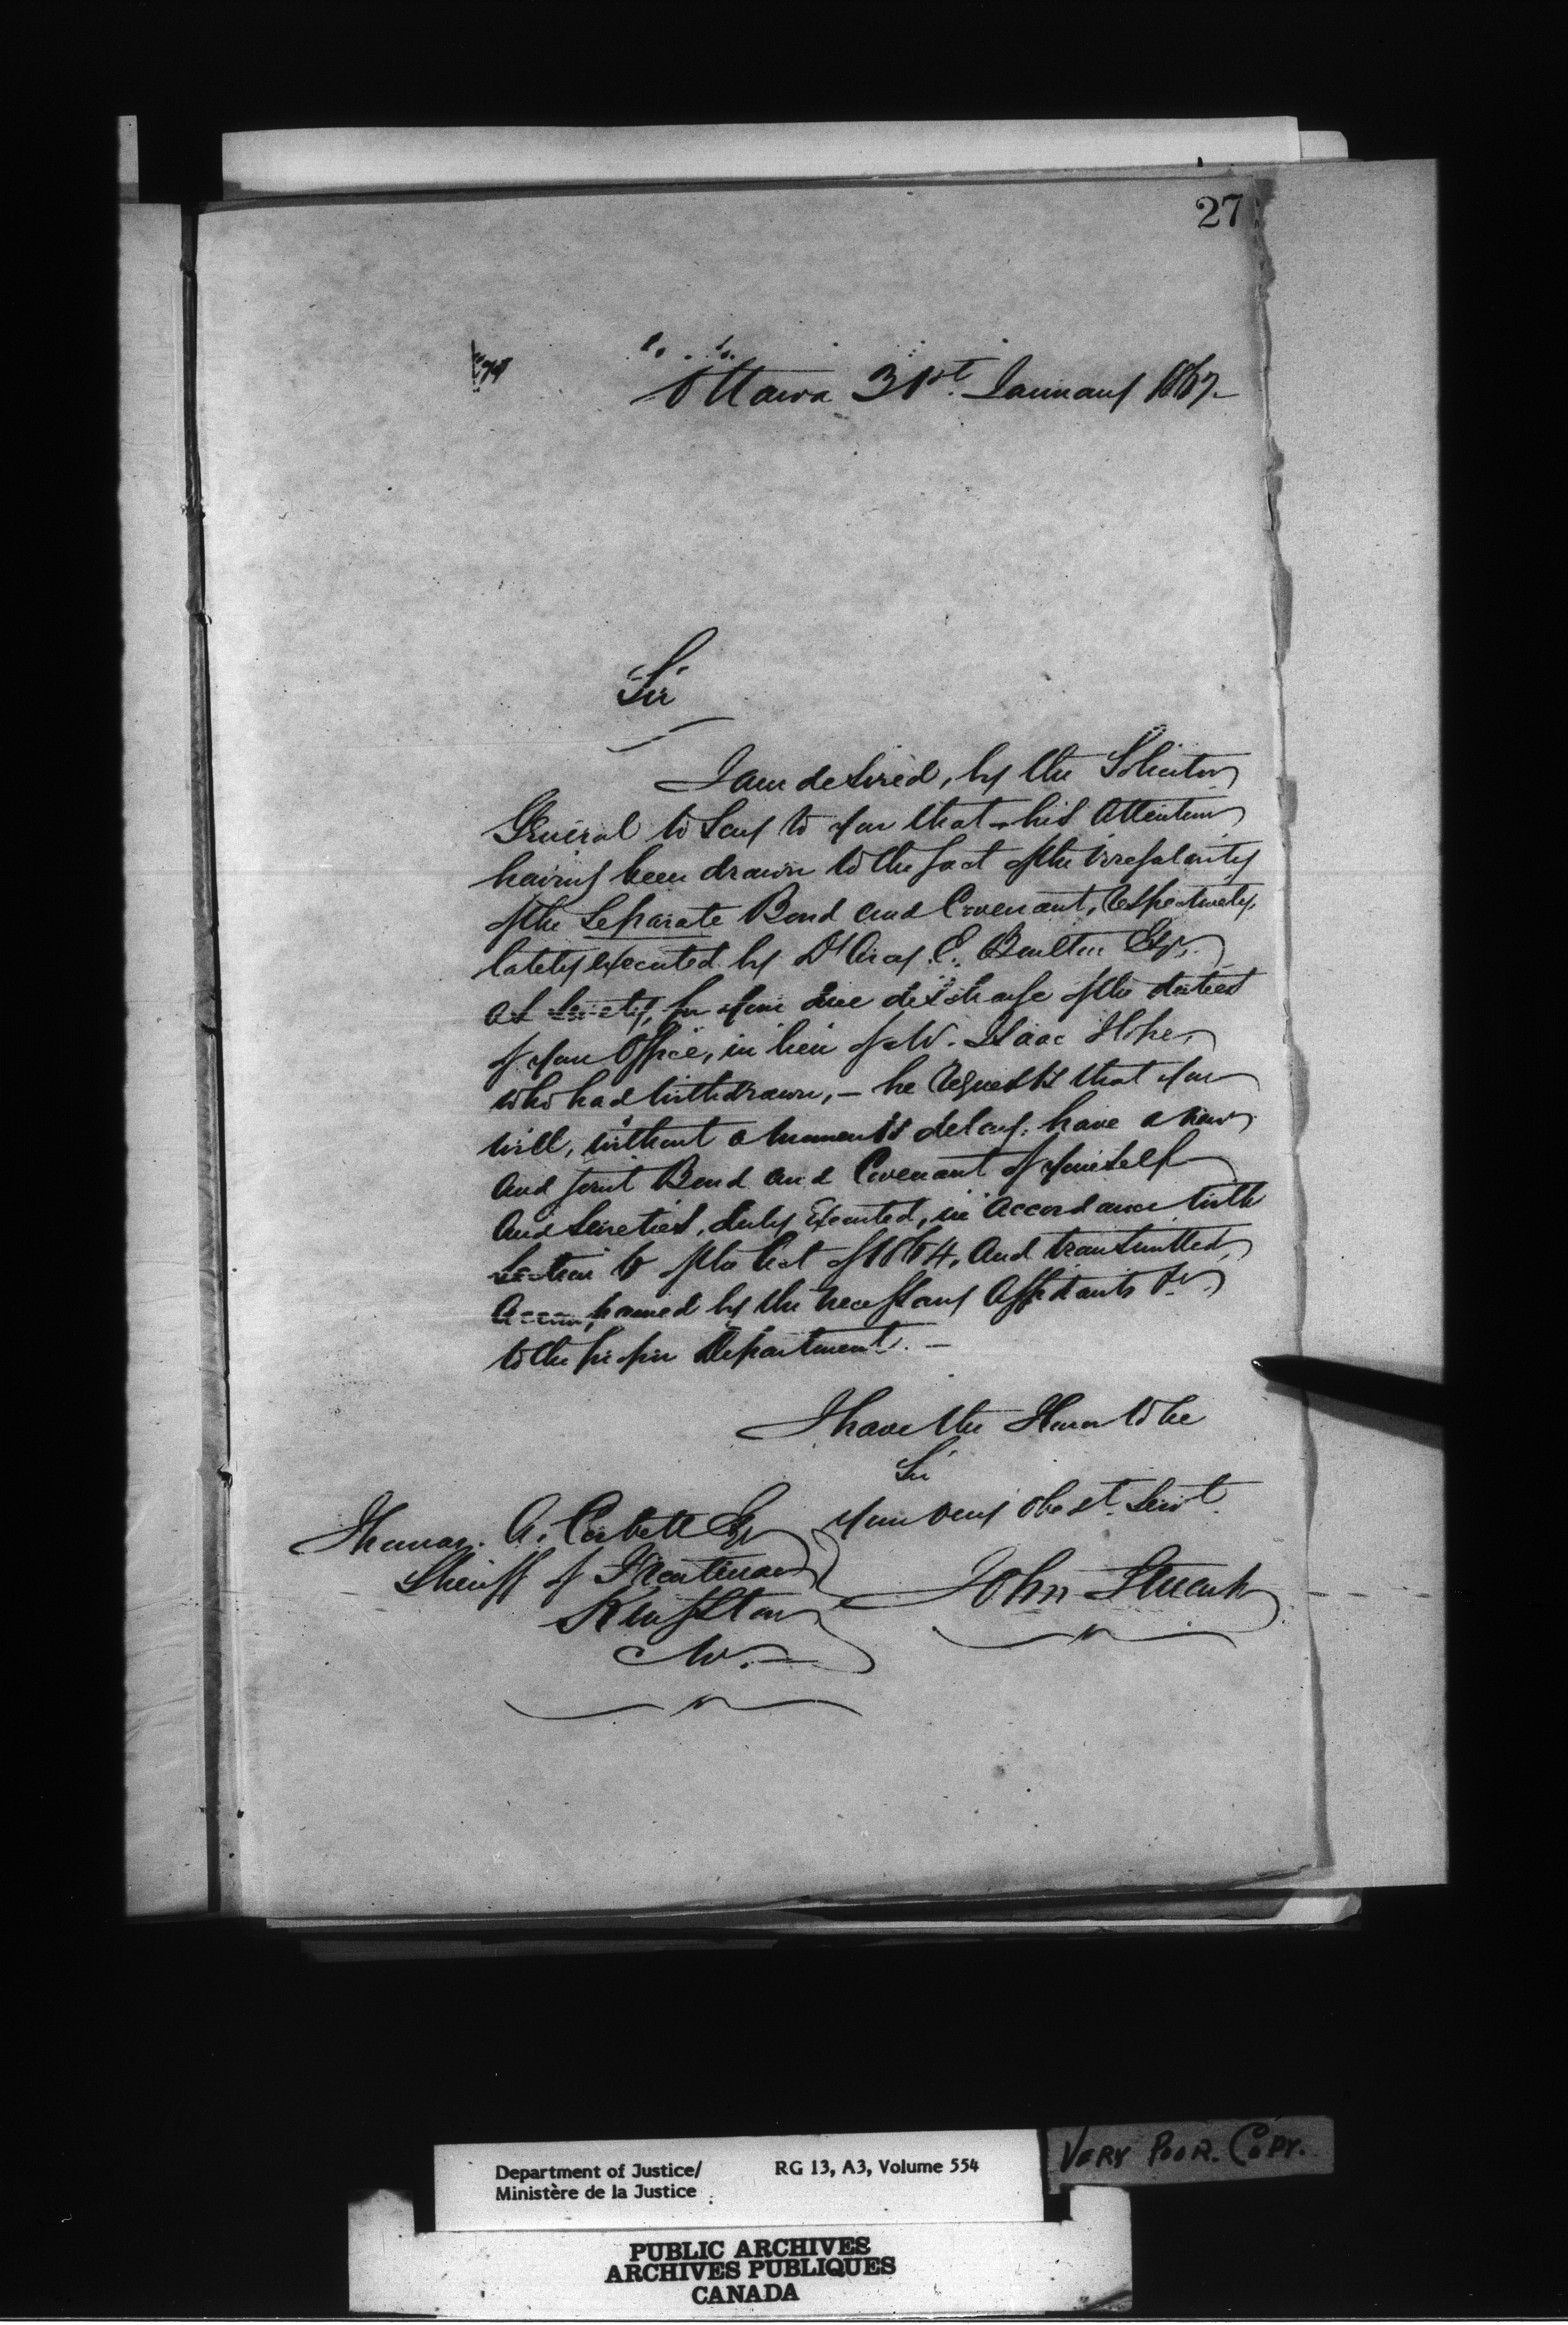 27
Ottawa 31st. January 1867.
Sir
I am desired, by the Solicitor
General to say to you that his Attention
having been drawn to the fact of the irregularity
of the separate Bond and Covenant, respectively,
lately executed by D'Arcy. E. Boulton Esqr.
as surety, for your due discharge of the duties
of your Office, in lieu of Mr. Isaac Hope,
who had withdrawn, – he requests that you
will, without a moments delay, have a new
and joint Bond and Covenant of yourself
and sureties, duly executed, in accordance with
Section 6 of the Act of 1864, and transmitted,
accompanied by the necessary Affidavits &c
to the proper Department. –
I have the Honor to be
Sir
Your very obedt. Servt.
Thomas. A. Corbett Esqr
Sheriff of Frontenac
Kingston
CW. –
John
Department of Justice/ RG 13, A3, Volume 554
Ministère de la Justice
VERY POOR. COPY.
PUBLIC ARCHIVES
ARCHIVES PUBLIQUES
CANADA